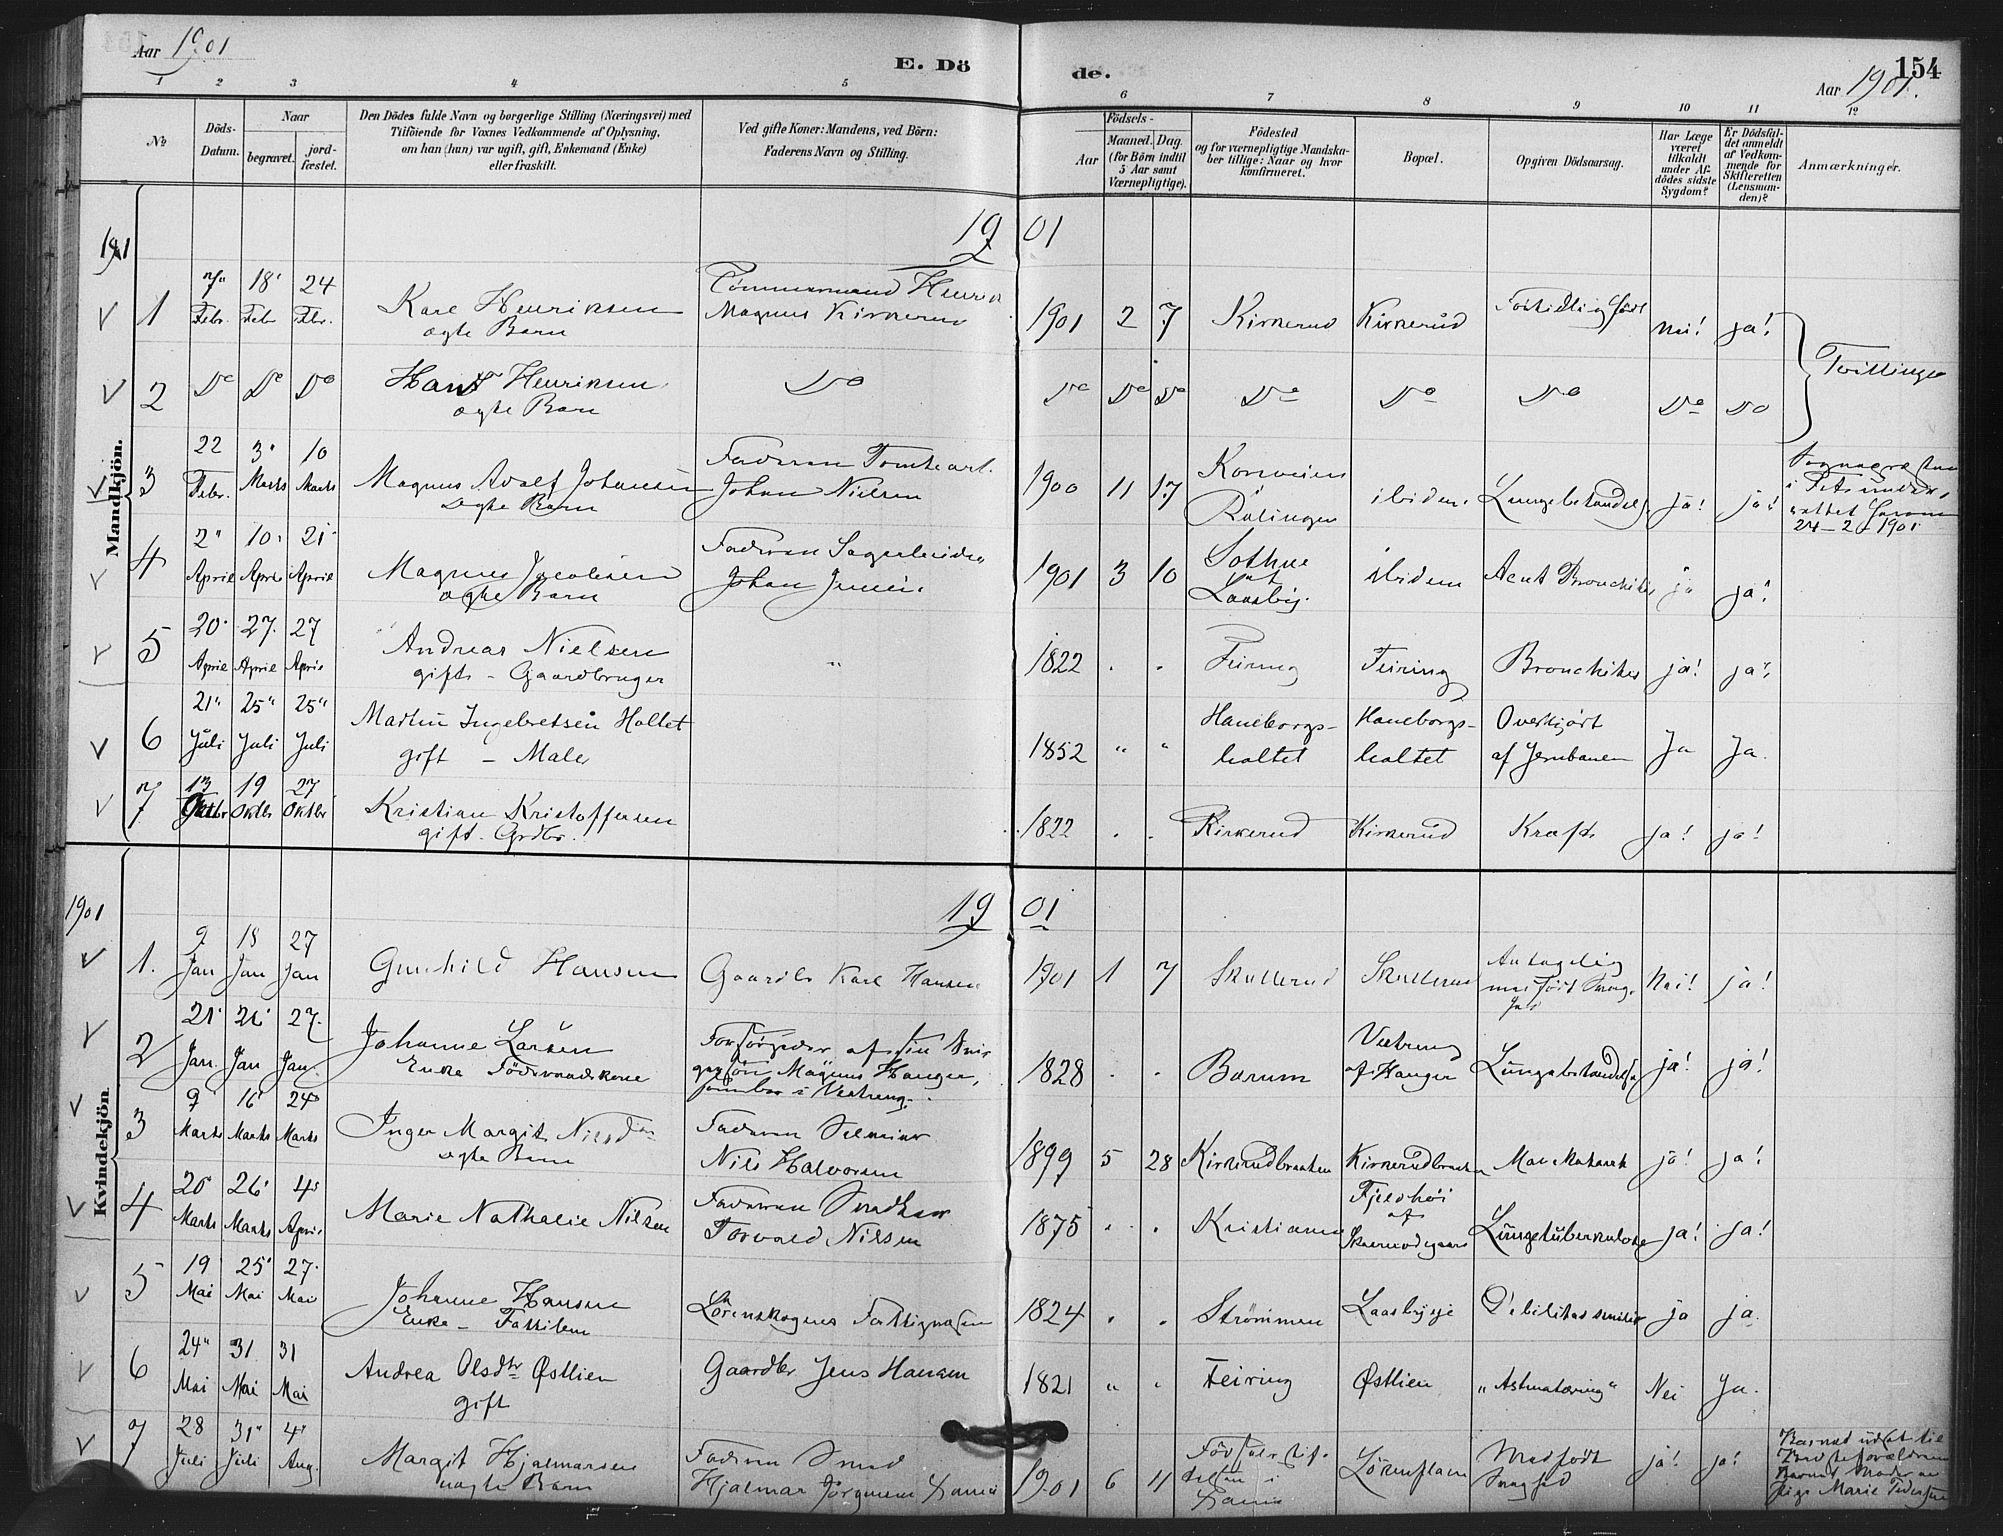 Aar 1901
E. Dö
de.
154
Aar 1901.
1 2 3 4 5 6 7 8 9 10 11 12
No
Döds-
Datum.
Naar
begravet.
jord-
fæstet.
Den Dödes fulde Navn og borgerlige Stilling (Næringsvei) med
Tilföiende for Voxnes Vedkommende af Oplysning,
om han (hun) var ugift, gift, Enkemand (Enke)
eller fraskilt.
Ved gifte Koner: Mandens, ved Börn:
Faderens Navn og Stilling.
Födsels-
Aar
Maaned. Dag.
(for Börn indtil
5 Aar samt
Værnepligtige).
Födested
og for værnepligtige Mandska-
ber tillige: Naar og hvor
konfirmeret.
Bopæl.
Opgiven Dödsaarsag.
Har Læge
været
tilkaldt
under Af-
dödes sidste
Sygdom?
Er Dödsfal-
det anmeldt
af Vedkom-
mende for
Skifteretten
(Lensman-
den)?
Anmærkninger.
Mandkjön.
1901
19 01
1 7 Febr. 18 Febr 24 Febr.
Karl Henriksen
ægte Barn
Tømmermand Henrik
Magnus Kirkerud
1901 2 7 Kirkerud Kirkerud Fortidlig født nei! ja!
Tvillinger
2 Do Do Do
Hans Henriksen
ægte Barn
Do
Do Do Do Do Do Do Do Do
3 22 Febr. 3 Marts 10 Marts
Magnus Adolf Johansen
ægte Barn
Faderen
Johan Nielsen
1900 11 17
Rälingen
ibidem. ja! ja!
24-2-1901
4 2 April 10 April 21 April
Magnus
ægte Barn
Faderen
Johan Jensen
1901 3 10
ibidem Acut Bronchitis ja ja!
5 20 April 27. April 27 April
Andreas Nielsen
gift - Gaardbruger
"
1822 . . Feiring Feiring Bronchites ja! ja!
6 21 Juli 25 Juli 25 Juli
Martin Ingebretsen Holtet
gift - Maler
1852 " "
Haneborgs-
holtet
Haneborgs-
holtet
Overkjørt
af Jernbanen
Ja Ja.
7 13 Oktbr 19 Oktbr 27 Oktbr
Kristian Kristoffersen
gift - Grdbr.
1822 . . Kirkerud Kirkerud Kræft ja! ja!
Kvindekjön
1901
19 01
1. 9 Jan 18 Jan 27 Jan
Gunhild Hansen
Gaardbr Karl Hansen
1901 1 7 Skullerud Skullerud
Antagelig
Nei! ja!
2 21 Jan. 26 Jan 27. Jan.
Johanne Larsen
Enke Föderaadskone
Forsørgedes af sin
Magnus Hauger,
1828 . . Bærum
af Hauger
ja! ja!
3 9 Marts 16 Marts 24 Marts
Inger Margit
ægte Barn
Faderen
Nils Halvorsen
1899 5 28 Kirkerudbraaten Kirkerudbraaten ja! ja!
4 20 Marts 26 Marts 4 April
Marie Nathalie Nilsen
Faderen Snedker
Torvald Nilsen
1875 . . Kristiania
Fjeldhöi
af
Lungetuberkulose ja! ja!
5 19 Mai 25 Mai 27. Mai
Johanne Hansen
Enke -
Lørenskogens Fattigvæsen
1824 . . Strömmen Debilitas senilis ja ja.
6 24 Mai 31 Mai 31 Mai
Andrea Olsdtr Østlien
gift
Gaardbr Jens Hansen
1821 " " Feiring Østlien Nei Ja.
7 28 Juli 31 Juli 4 Aug.
Margit Hjalmarsen
uægte Barn
Faderen Smed
Hjalmar
1901 6 4
Medfødt
Svaghed
ja! ja!